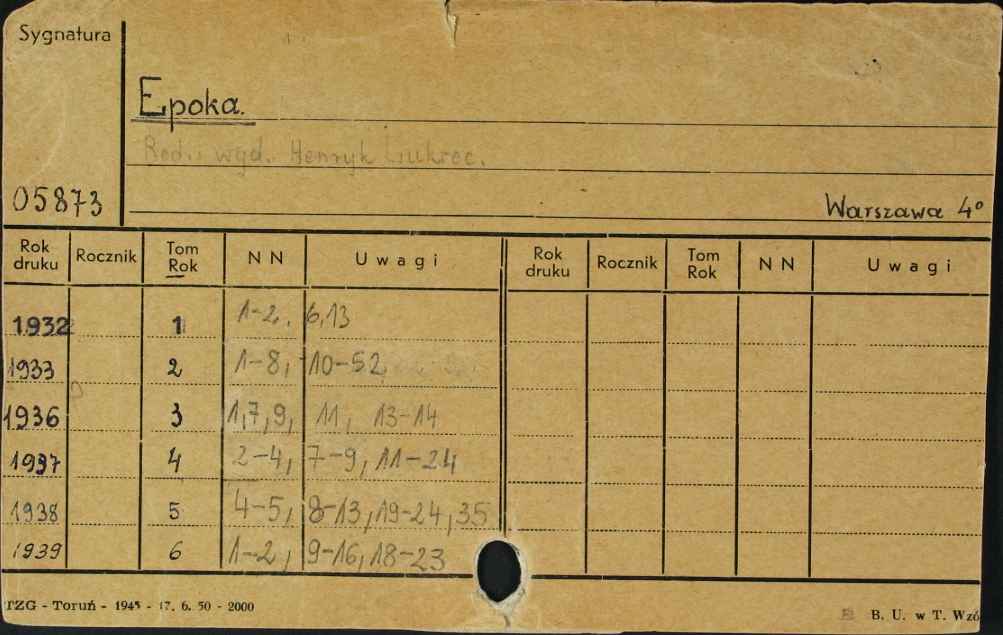 Sygnatura
Epoka.
Red. i wyd. Henryk Lukrec.
05873
Warszawa 4°
Rok druku Rocznik Tom Rok N N Uwagi Rok druku Rocznik Tom Rok N N Uwagi
1932 1 1-2, 6,13
1933 2 1-8, 10-52
1936 3 1,7,9, 11, 13-14
1937 4 2-4, 7-9, 11-24
1938 5 4-5, 8-13, 19-24, 35
1939 6 1-2, 9-16, 18-23
TZG - Toruń - 1945 - 17. 6. 50 - 2000
B. U. w T. Wzó